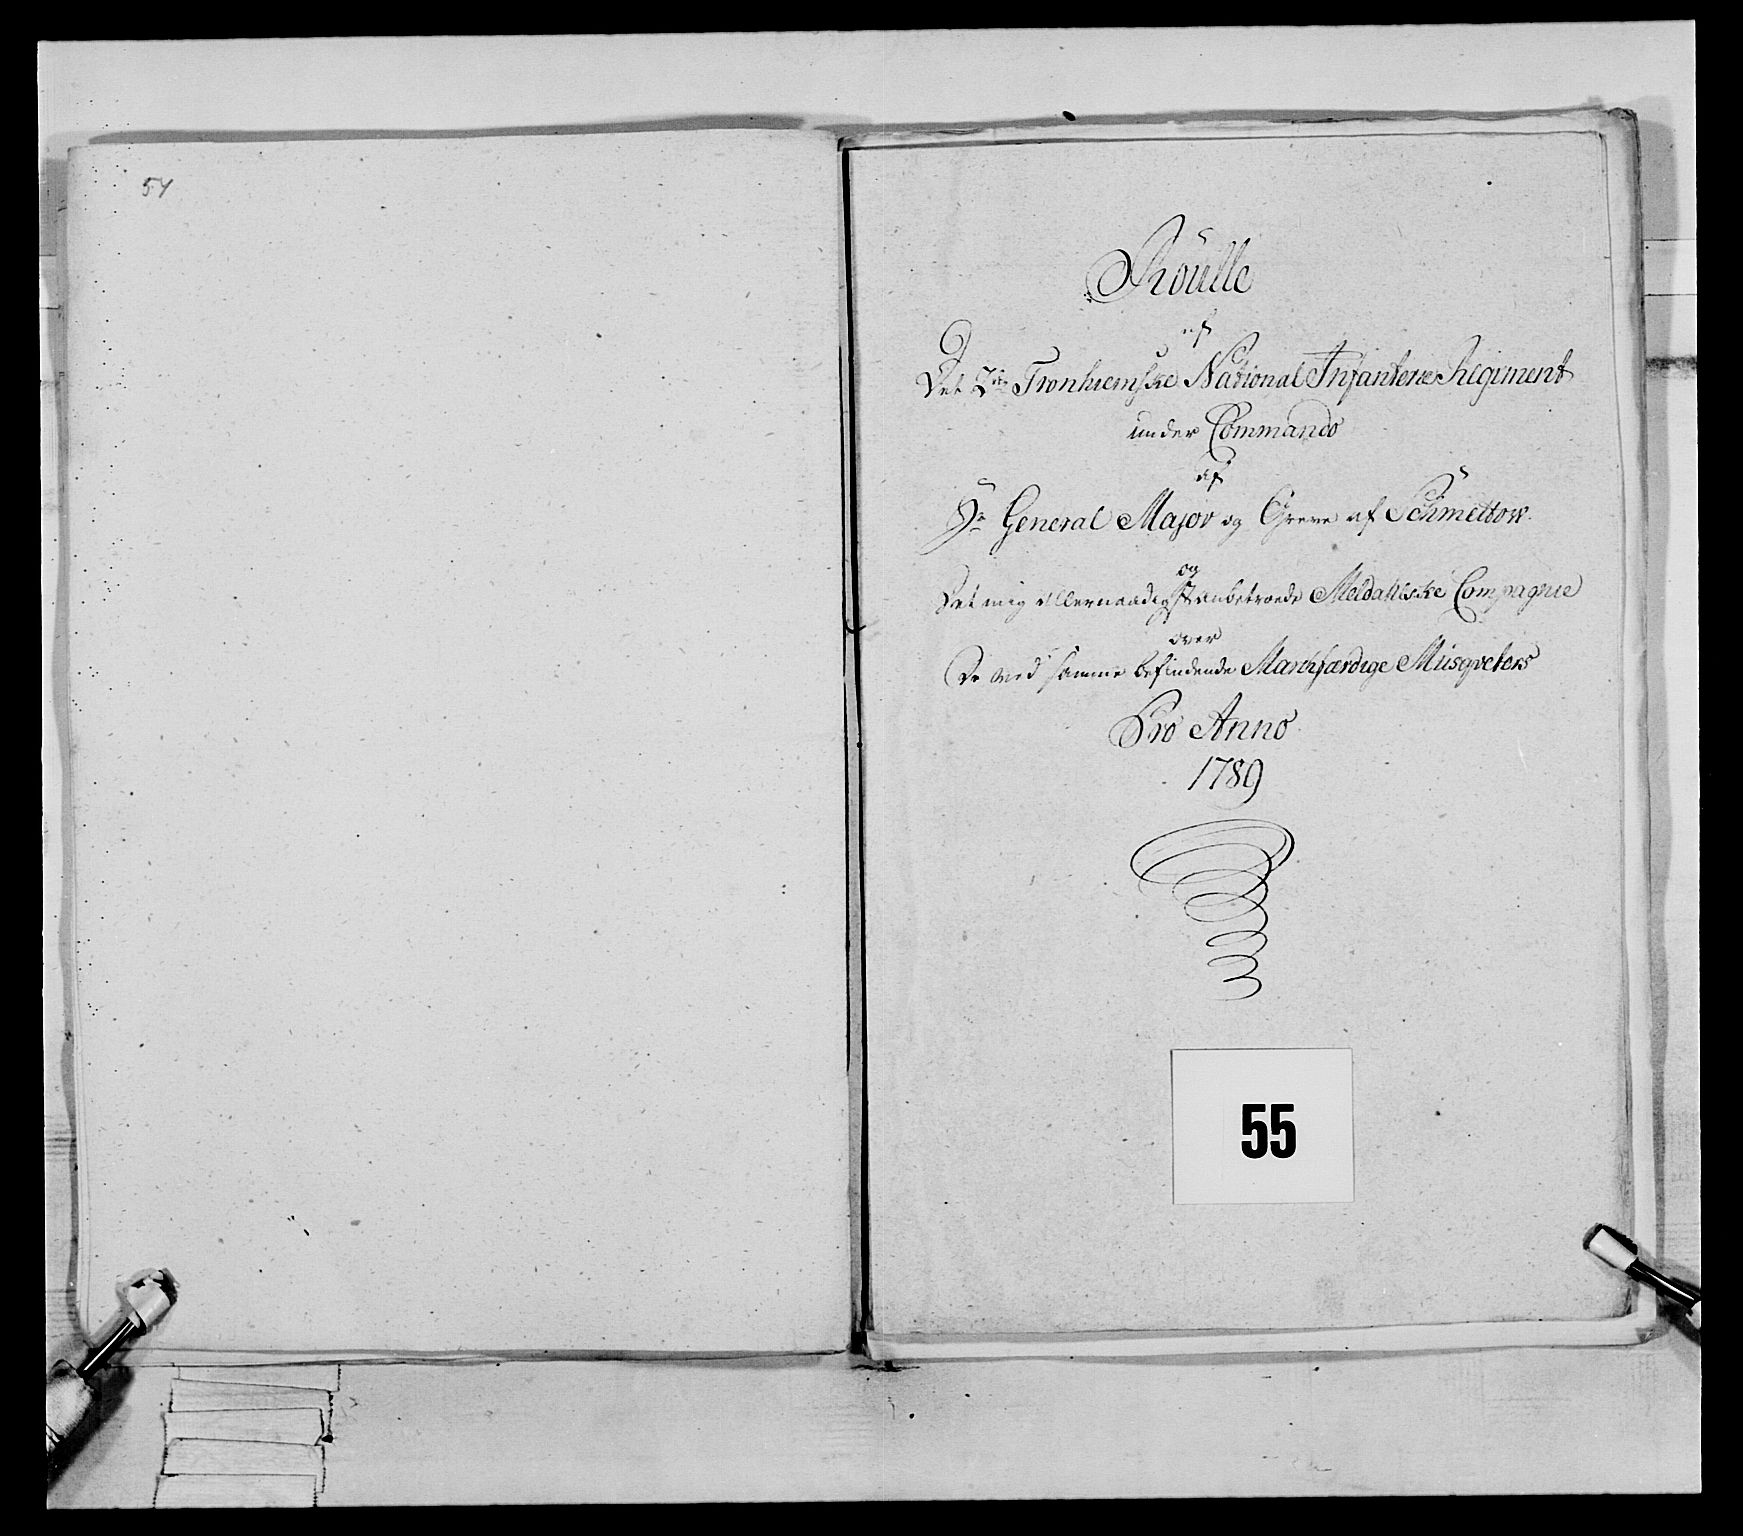 54
Roulle
af
Det 2det Tronhiemske National Infanterie Regiment
under Commando
af
Hr General Major og Greve af Schmettow.
og
Det mig allernaadigst anbetroede Meldahlske Compagnie
over
De ved samme befindende Marchfærdige Musqveters
Pro Anno
1789
55